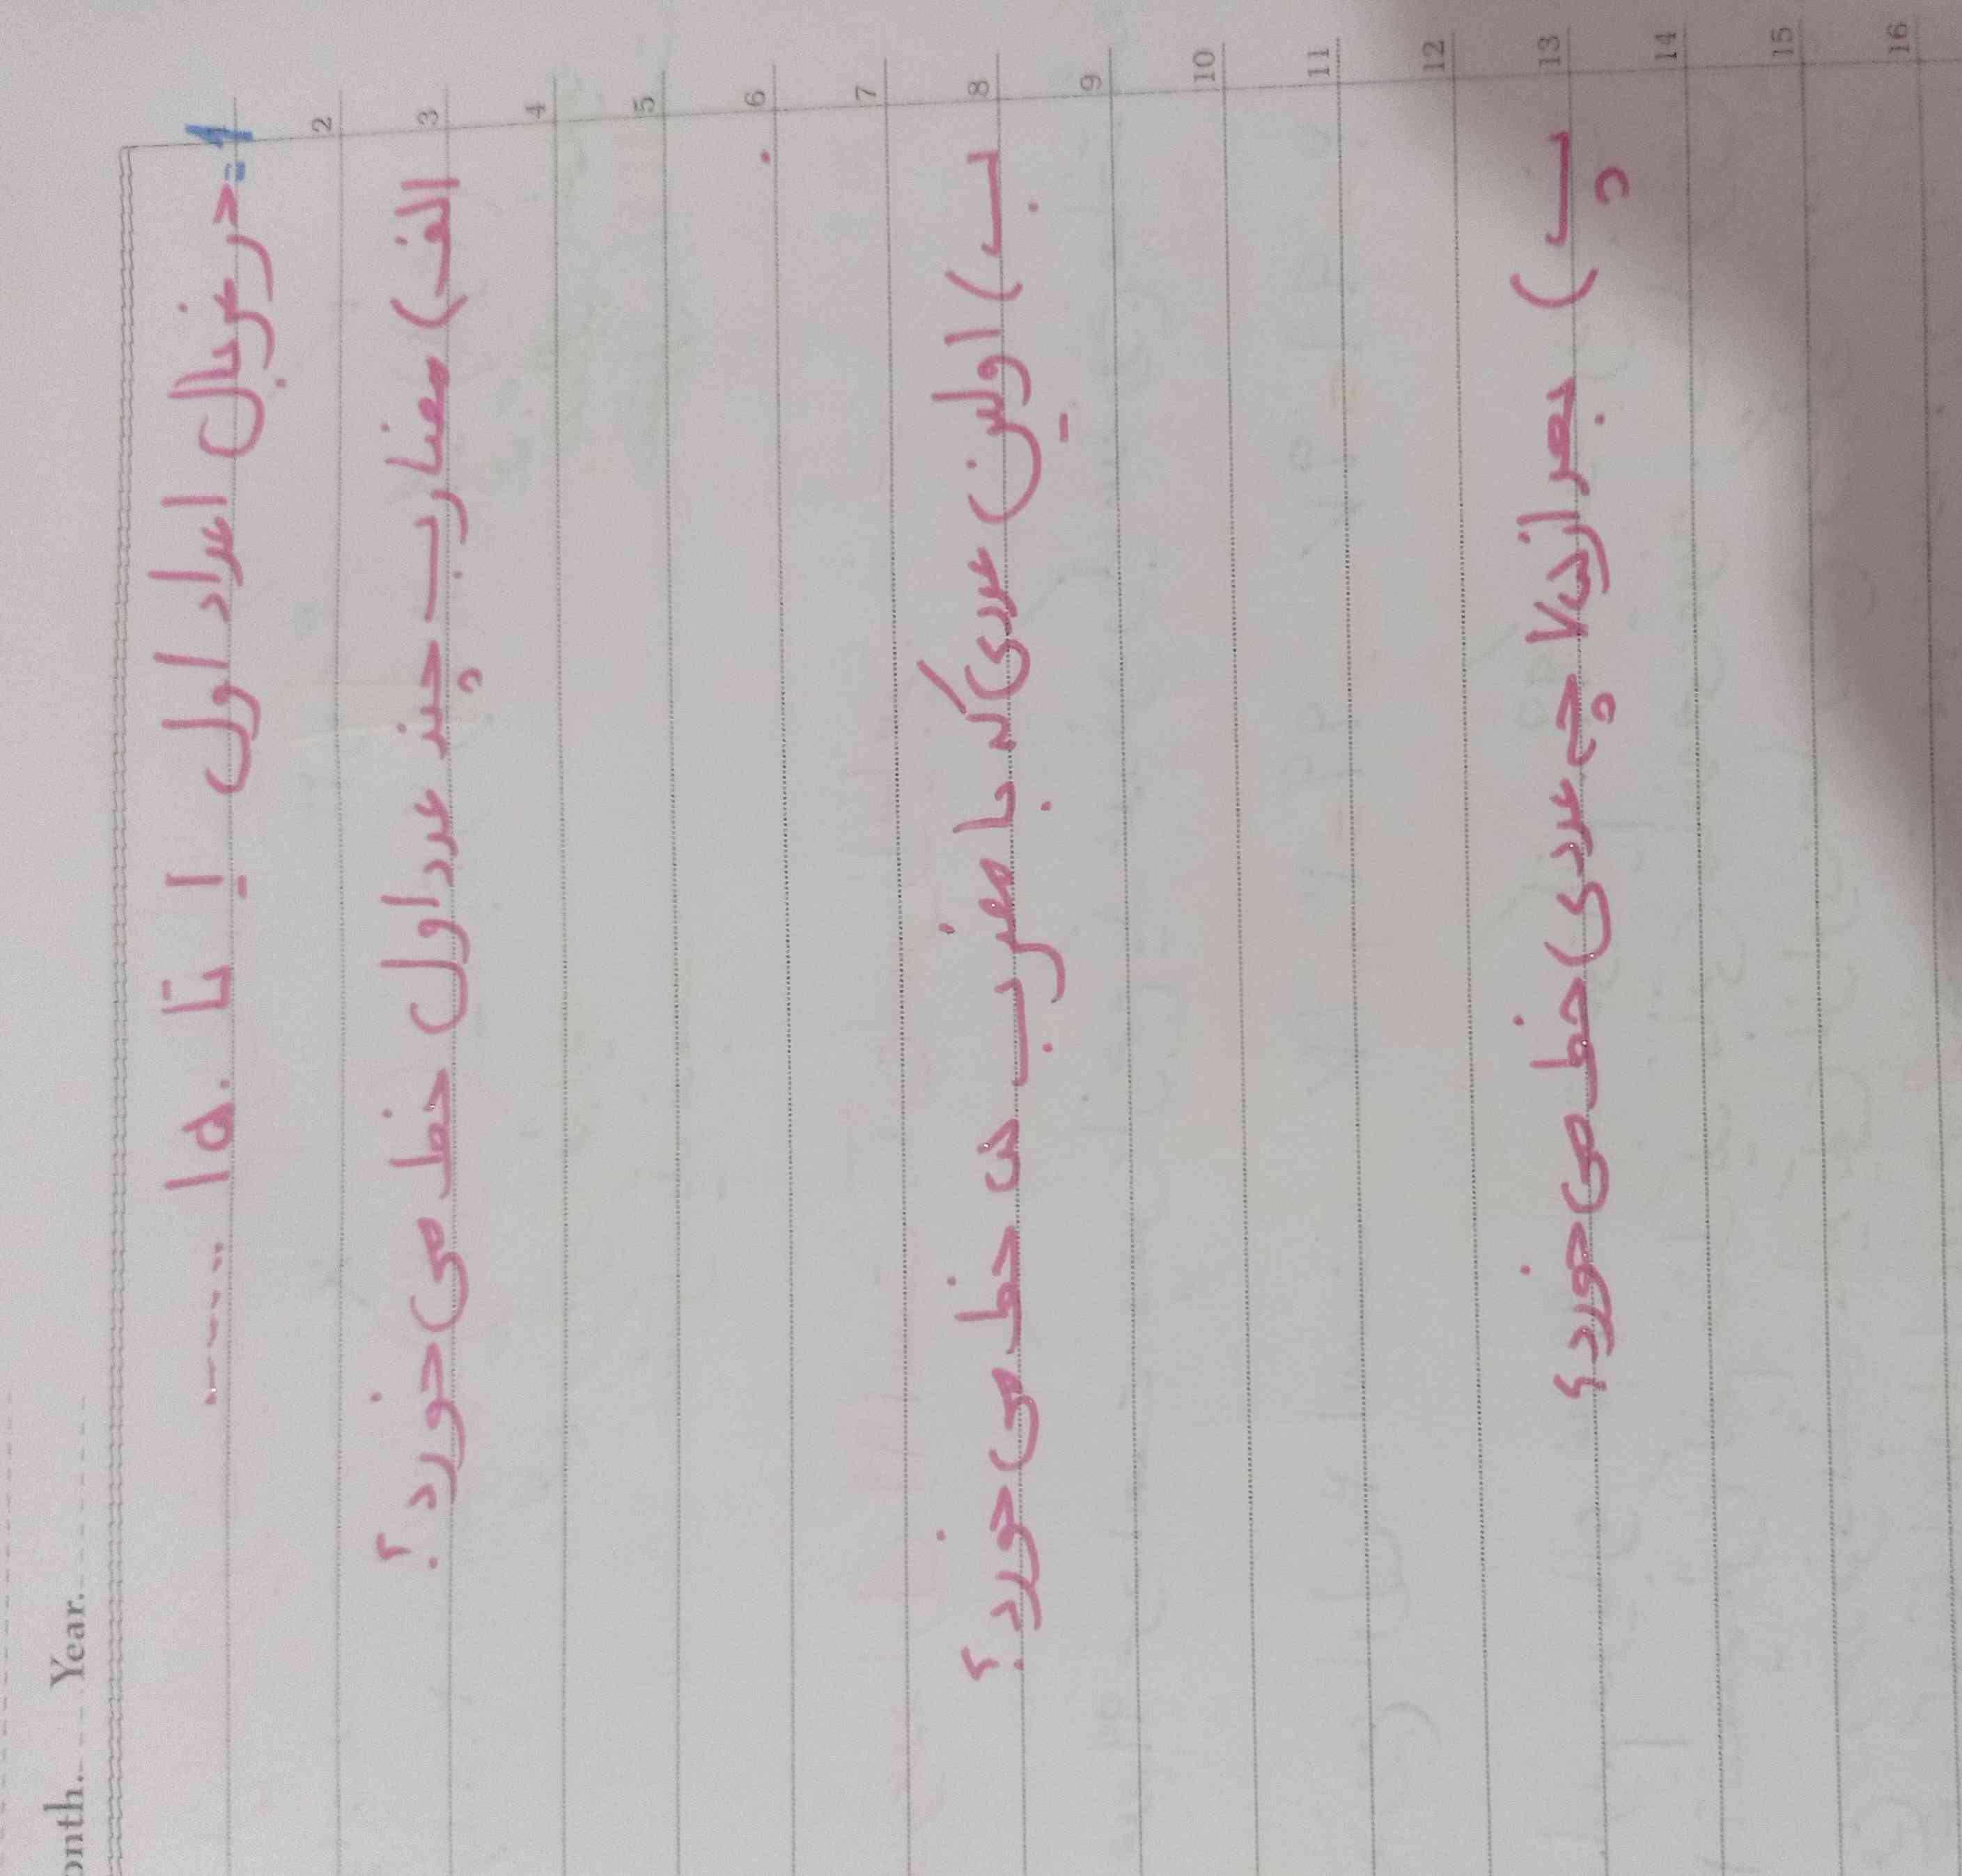 onth...... Year.......
1- در غربال اعداد اول ۱ تا ۱۵۰ .....
2
3 الف) مضارب چند عدد اول خط می‌خورد؟
4
5
6
7
8 ب) اولین عددی که با مضرب ۵ خط می‌خورد؟
9
10
11
12
13 پ) بعد از ۷ چه عددی خط می‌خورد؟
14
15
16